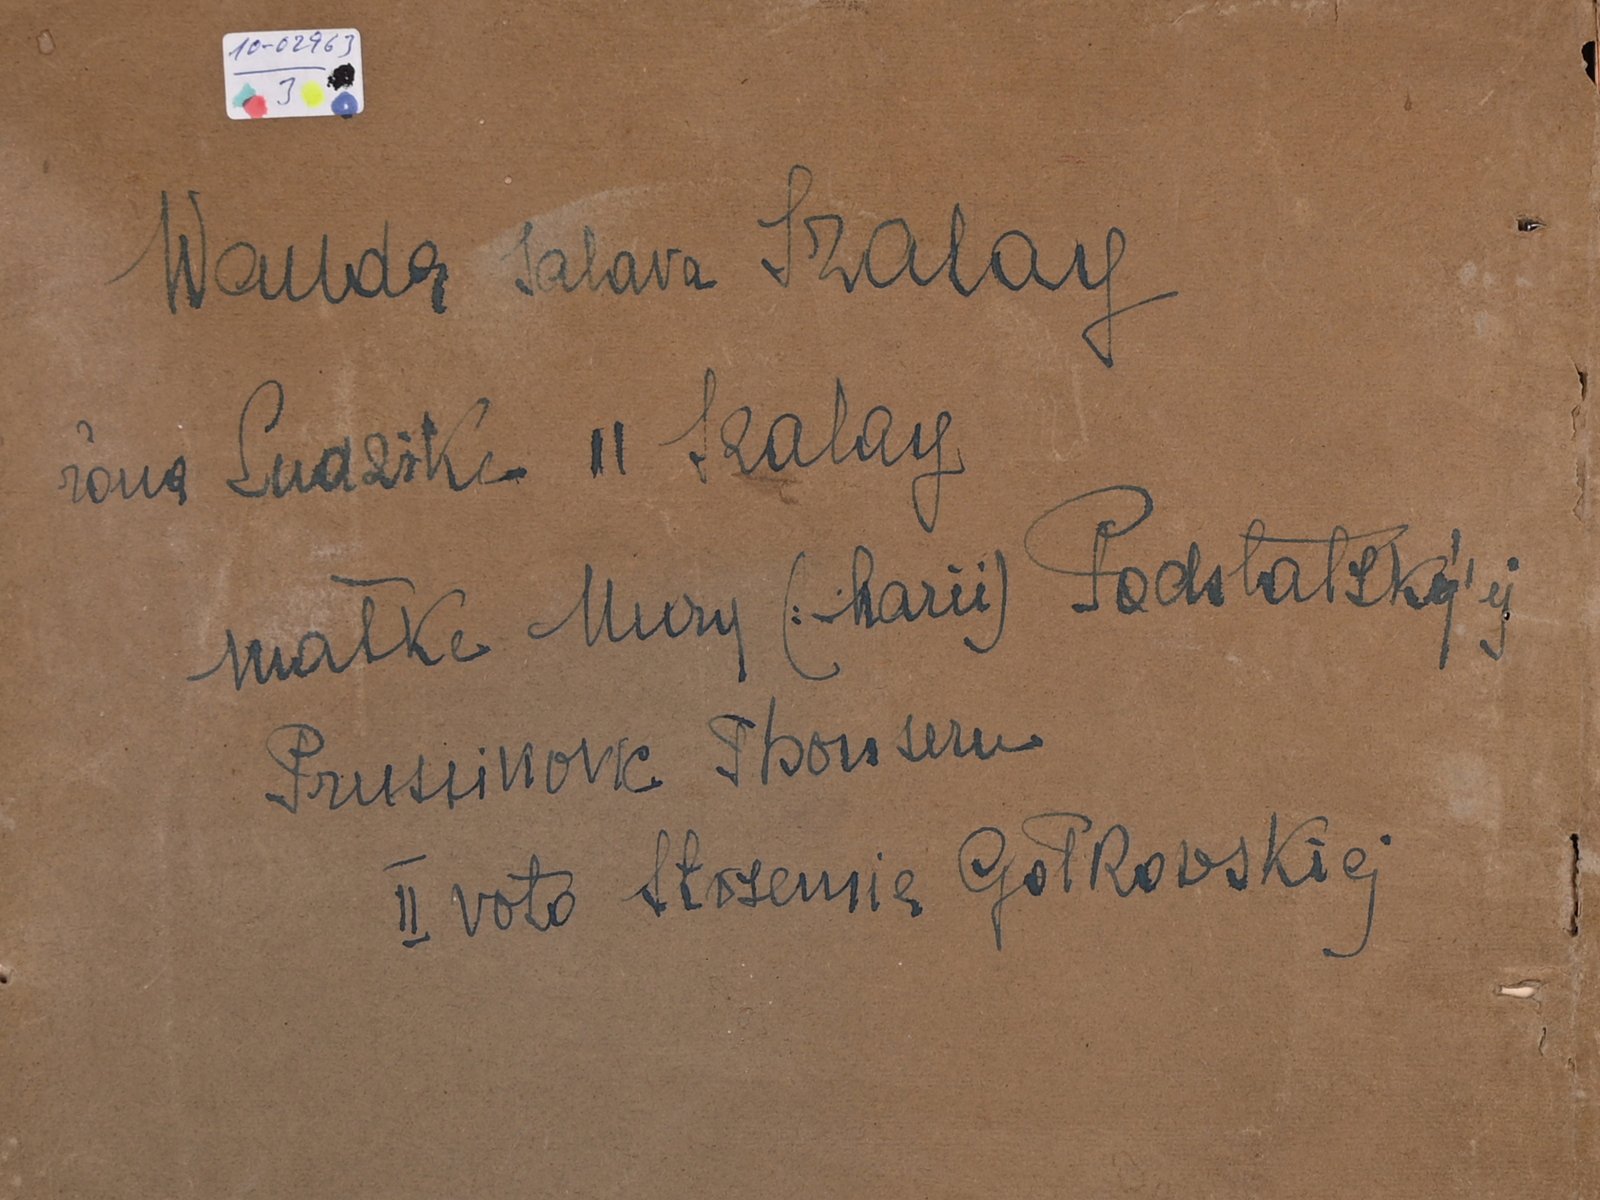 10-02963
3
Wanda Salava Szalay
żona Ludzika II Szalay
matka Mury (: Marii) Podstatszký'ej
Prussinovic Thonsern
II voto Skrzemię Gołkowskiej